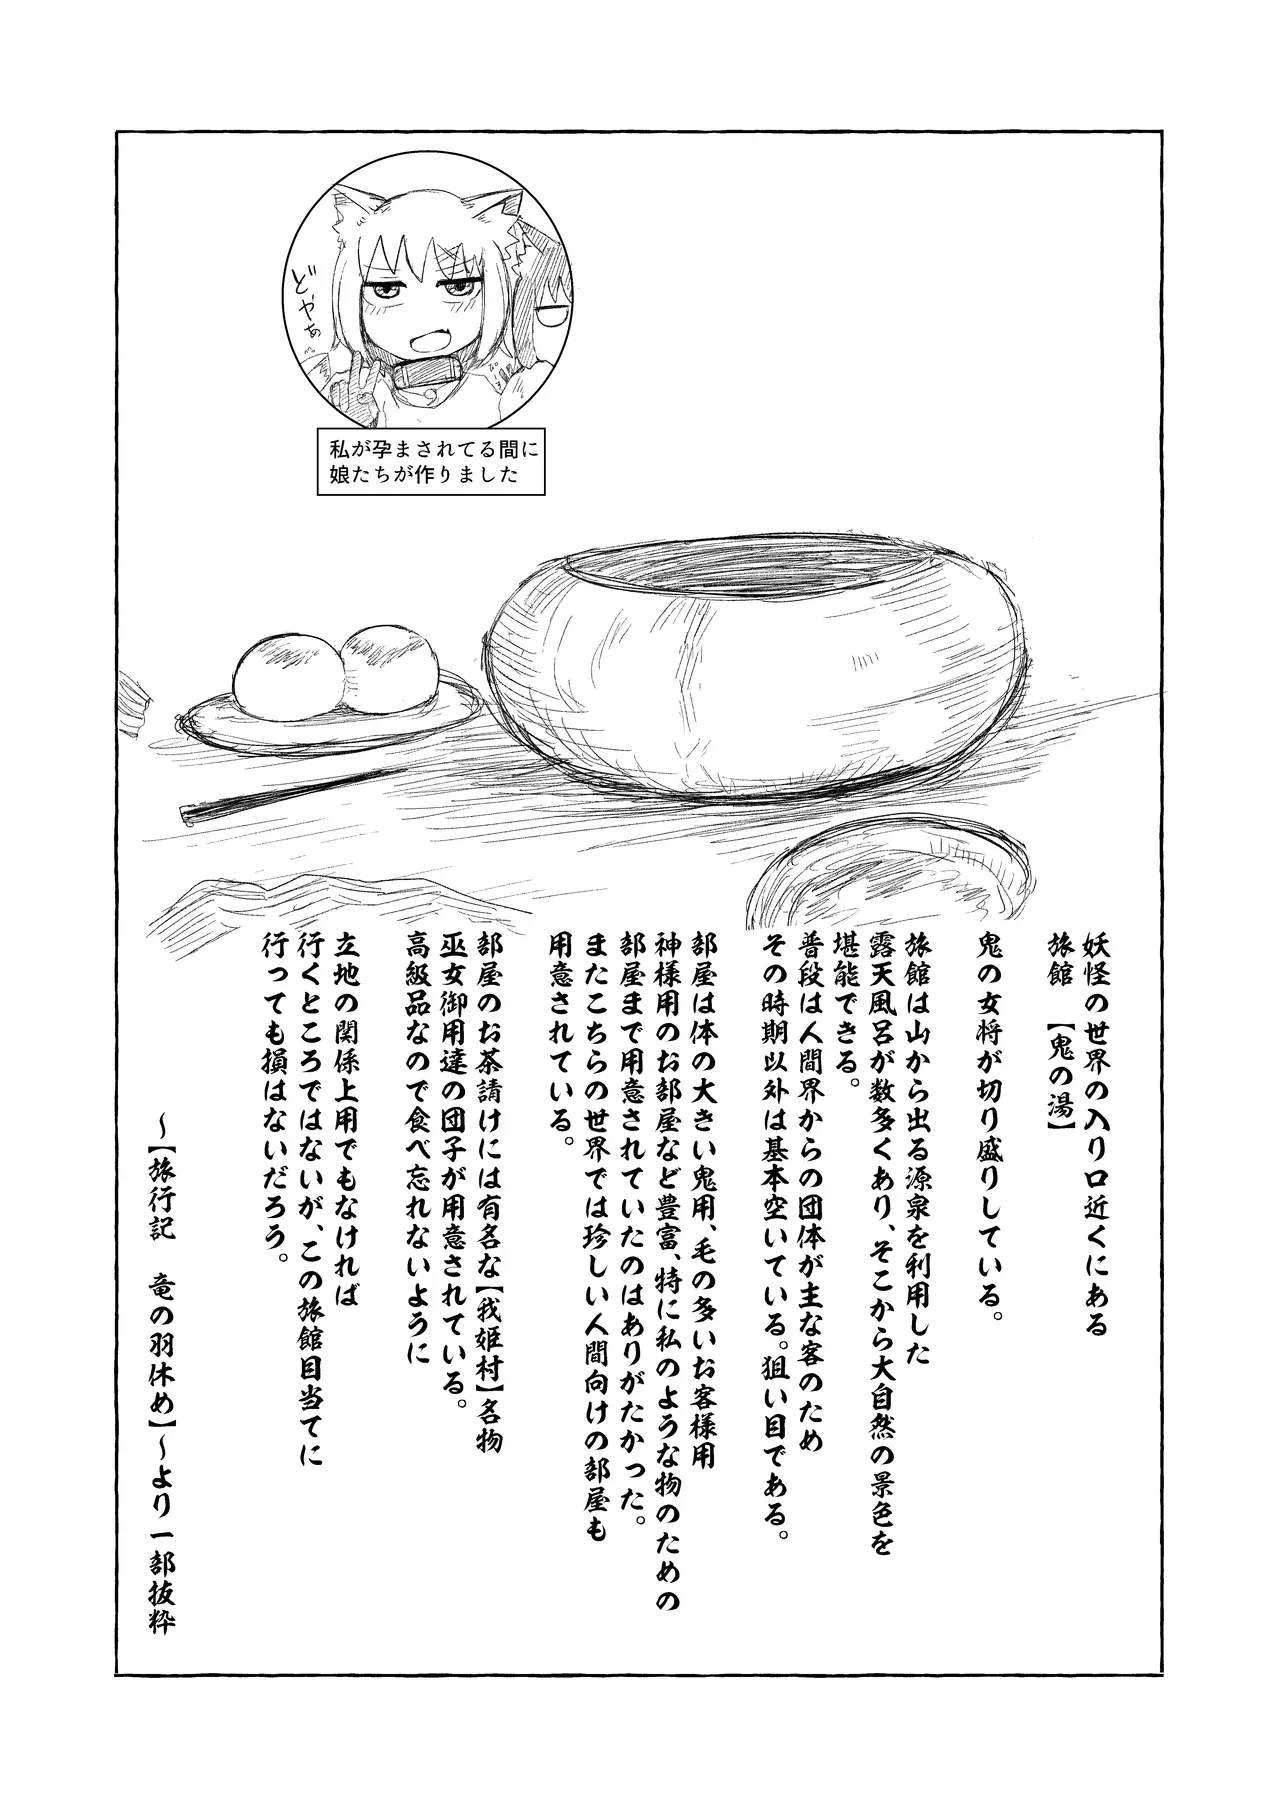 どやぁ
私が孕まされてる間に
娘たちが作りました
妖怪の世界の入り口近くにある
旅館　【鬼の湯】
鬼の女将が切り盛りしている。
旅館は山から出る源泉を利用した
露天風呂が数多くあり、そこから大自然の景色を
堪能できる。
普段は人間界からの団体が主な客のため
その時期以外は基本空いている。狙い目である。
部屋は体の大きい鬼用、毛の多いお客様用
神様用のお部屋など豊富、特に私のような物のための
部屋まで用意されていたのはありがたかった。
またこちらの世界では珍しい人間向けの部屋も
用意されている。
部屋のお茶請けには有名な【我姫村】名物
巫女御用達の団子が用意されている。
高級品なので食べ忘れないように
立地の関係上用でもなければ
行くところではないが、この旅館目当てに
行っても損はないだろう。
～【旅行記　竜の羽休め】～より一部抜粋